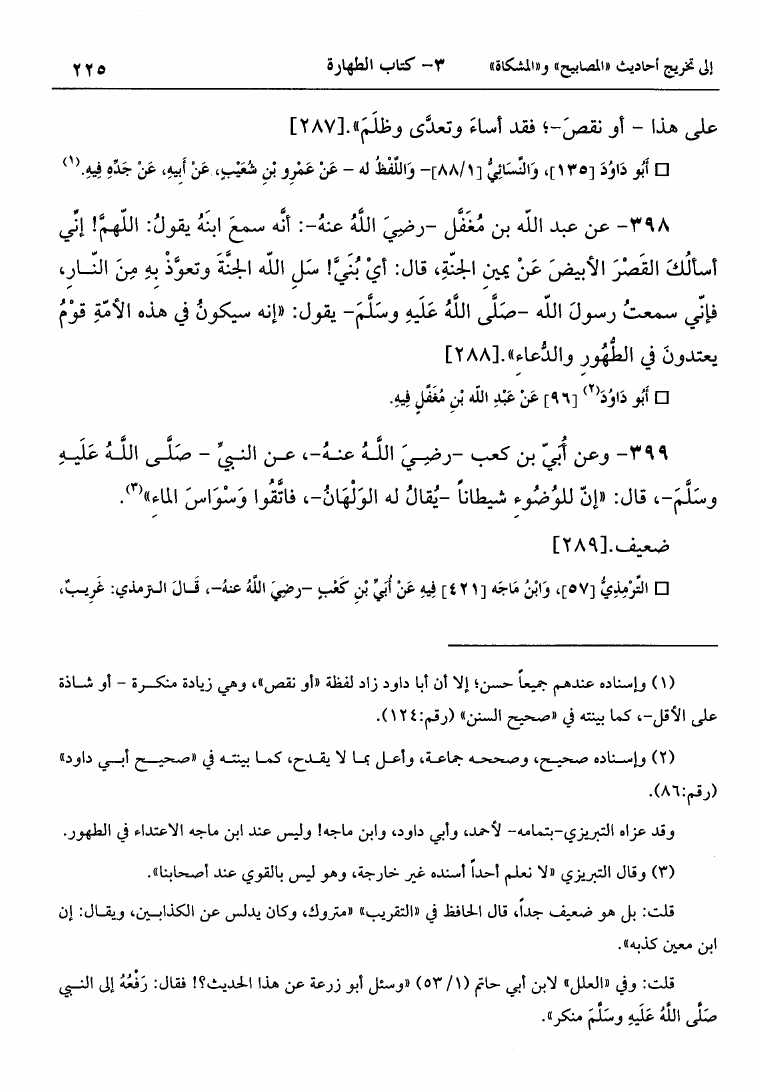 إلى تخريج أحاديث «المصابيح» و«المشكاة» ٣- كتاب الطهارة ٢٢٥
على هذا - أو نقصَ-؛ فقد أساءَ وتعدَّى وظلَمَ».[٢٨٧]
□ أَبُو دَاوُدَ [١٣٥]، وَالنَّسَائِيُّ [٨٨/١]- وَاللَّفْظُ له - عَنْ عَمْرِو بْنِ شُعَيْبٍ، عَنْ أَبِيهِ، عَنْ جَدِّهِ فِيهِ.(١)
٣٩٨- عن عبد الله بن مُغَفَّل -رضيَ اللَّهُ عنهُ-: أنَّه سمعَ ابنَهُ يقولُ: اللّهمَّ! إنّي
أسألُكَ القَصْرَ الأبيضَ عَنْ يمينِ الجنّةِ، قال: أيْ بُنَيَّ! سَلِ الله الجنَّةَ وتعوَّذْ بِهِ مِنَ النّـارِ،
فإنّي سمعتُ رسولَ الله -صَلَّى اللَّهُ عَلَيهِ وسَلَّمَ- يقول: «إنه سيكونُ في هذه الأمّةِ قومٌ
يعتدونَ في الطُّهُورِ والدُّعاءِ».[٢٨٨]
□ أَبُو دَاوُدَ(٢) [٩٦] عَنْ عَبْدِ اللَّه بْنِ مُغَفَّلٍ فِيهِ.
٣٩٩- وعن أُبَيّ بن كعب -رضـيَ اللَّـهُ عنـهُ-، عـن النبيِّ - صَلَّـى اللَّـهُ عَلَيـهِ
وسَلَّمَ-، قال: «إنّ للوُضُوءِ شيطاناً -يُقالُ له الوَلْهَانُ-، فاتَّقُوا وَسْوَاسَ الماءِ»(٣).
ضعيف.[٢٨٩]
□ التِّرْمِذِيُّ [٥٧]، وَابْنُ مَاجَه [٤٢١] فِيهِ عَنْ أُبَيِّ بْنِ كَعْبٍ -رضيَ اللَّهُ عنهُ-، قَـالَ الـترمذي: غَرِيبٌ،
(١) وإسناده عندهم جميعاً حسن؛ إلا أن أبا داود زاد لفظة «أو نقص»، وهي زيادة منكـرة - أو شـاذة
على الأقل-، كما بينته في «صحيح السنن» (رقم:١٢٤).
(٢) وإسـناده صحيـح، وصححـه جماعـة، وأعـل بمـا لا يقـدح، كمـا بينتـه في «صحيـح أبـي داود»
(رقم:٨٦).
وقد عزاه التبريزي-بتمامه- لأحمد، وأبي داود، وابن ماجه! وليس عند ابن ماجه الاعتداء في الطهور.
(٣) وقال التبريزي «لا نعلم أحداً أسنده غير خارجة، وهو ليس بالقوي عند أصحابنا».
قلت: بل هو ضعيف جداً، قال الحافظ في «التقريب» «متروك، وكان يدلس عن الكذابـين، ويقـال: إن
ابن معين كذبه».
قلت: وفي «العلل» لابن أبي حاتم (١/ ٥٣) «وسئل أبو زرعة عن هذا الحديث؟! فقال: رَفْعُهُ إلى النـبي
صَلَّى اللَّهُ عَلَيهِ وسَلَّمَ منكر».